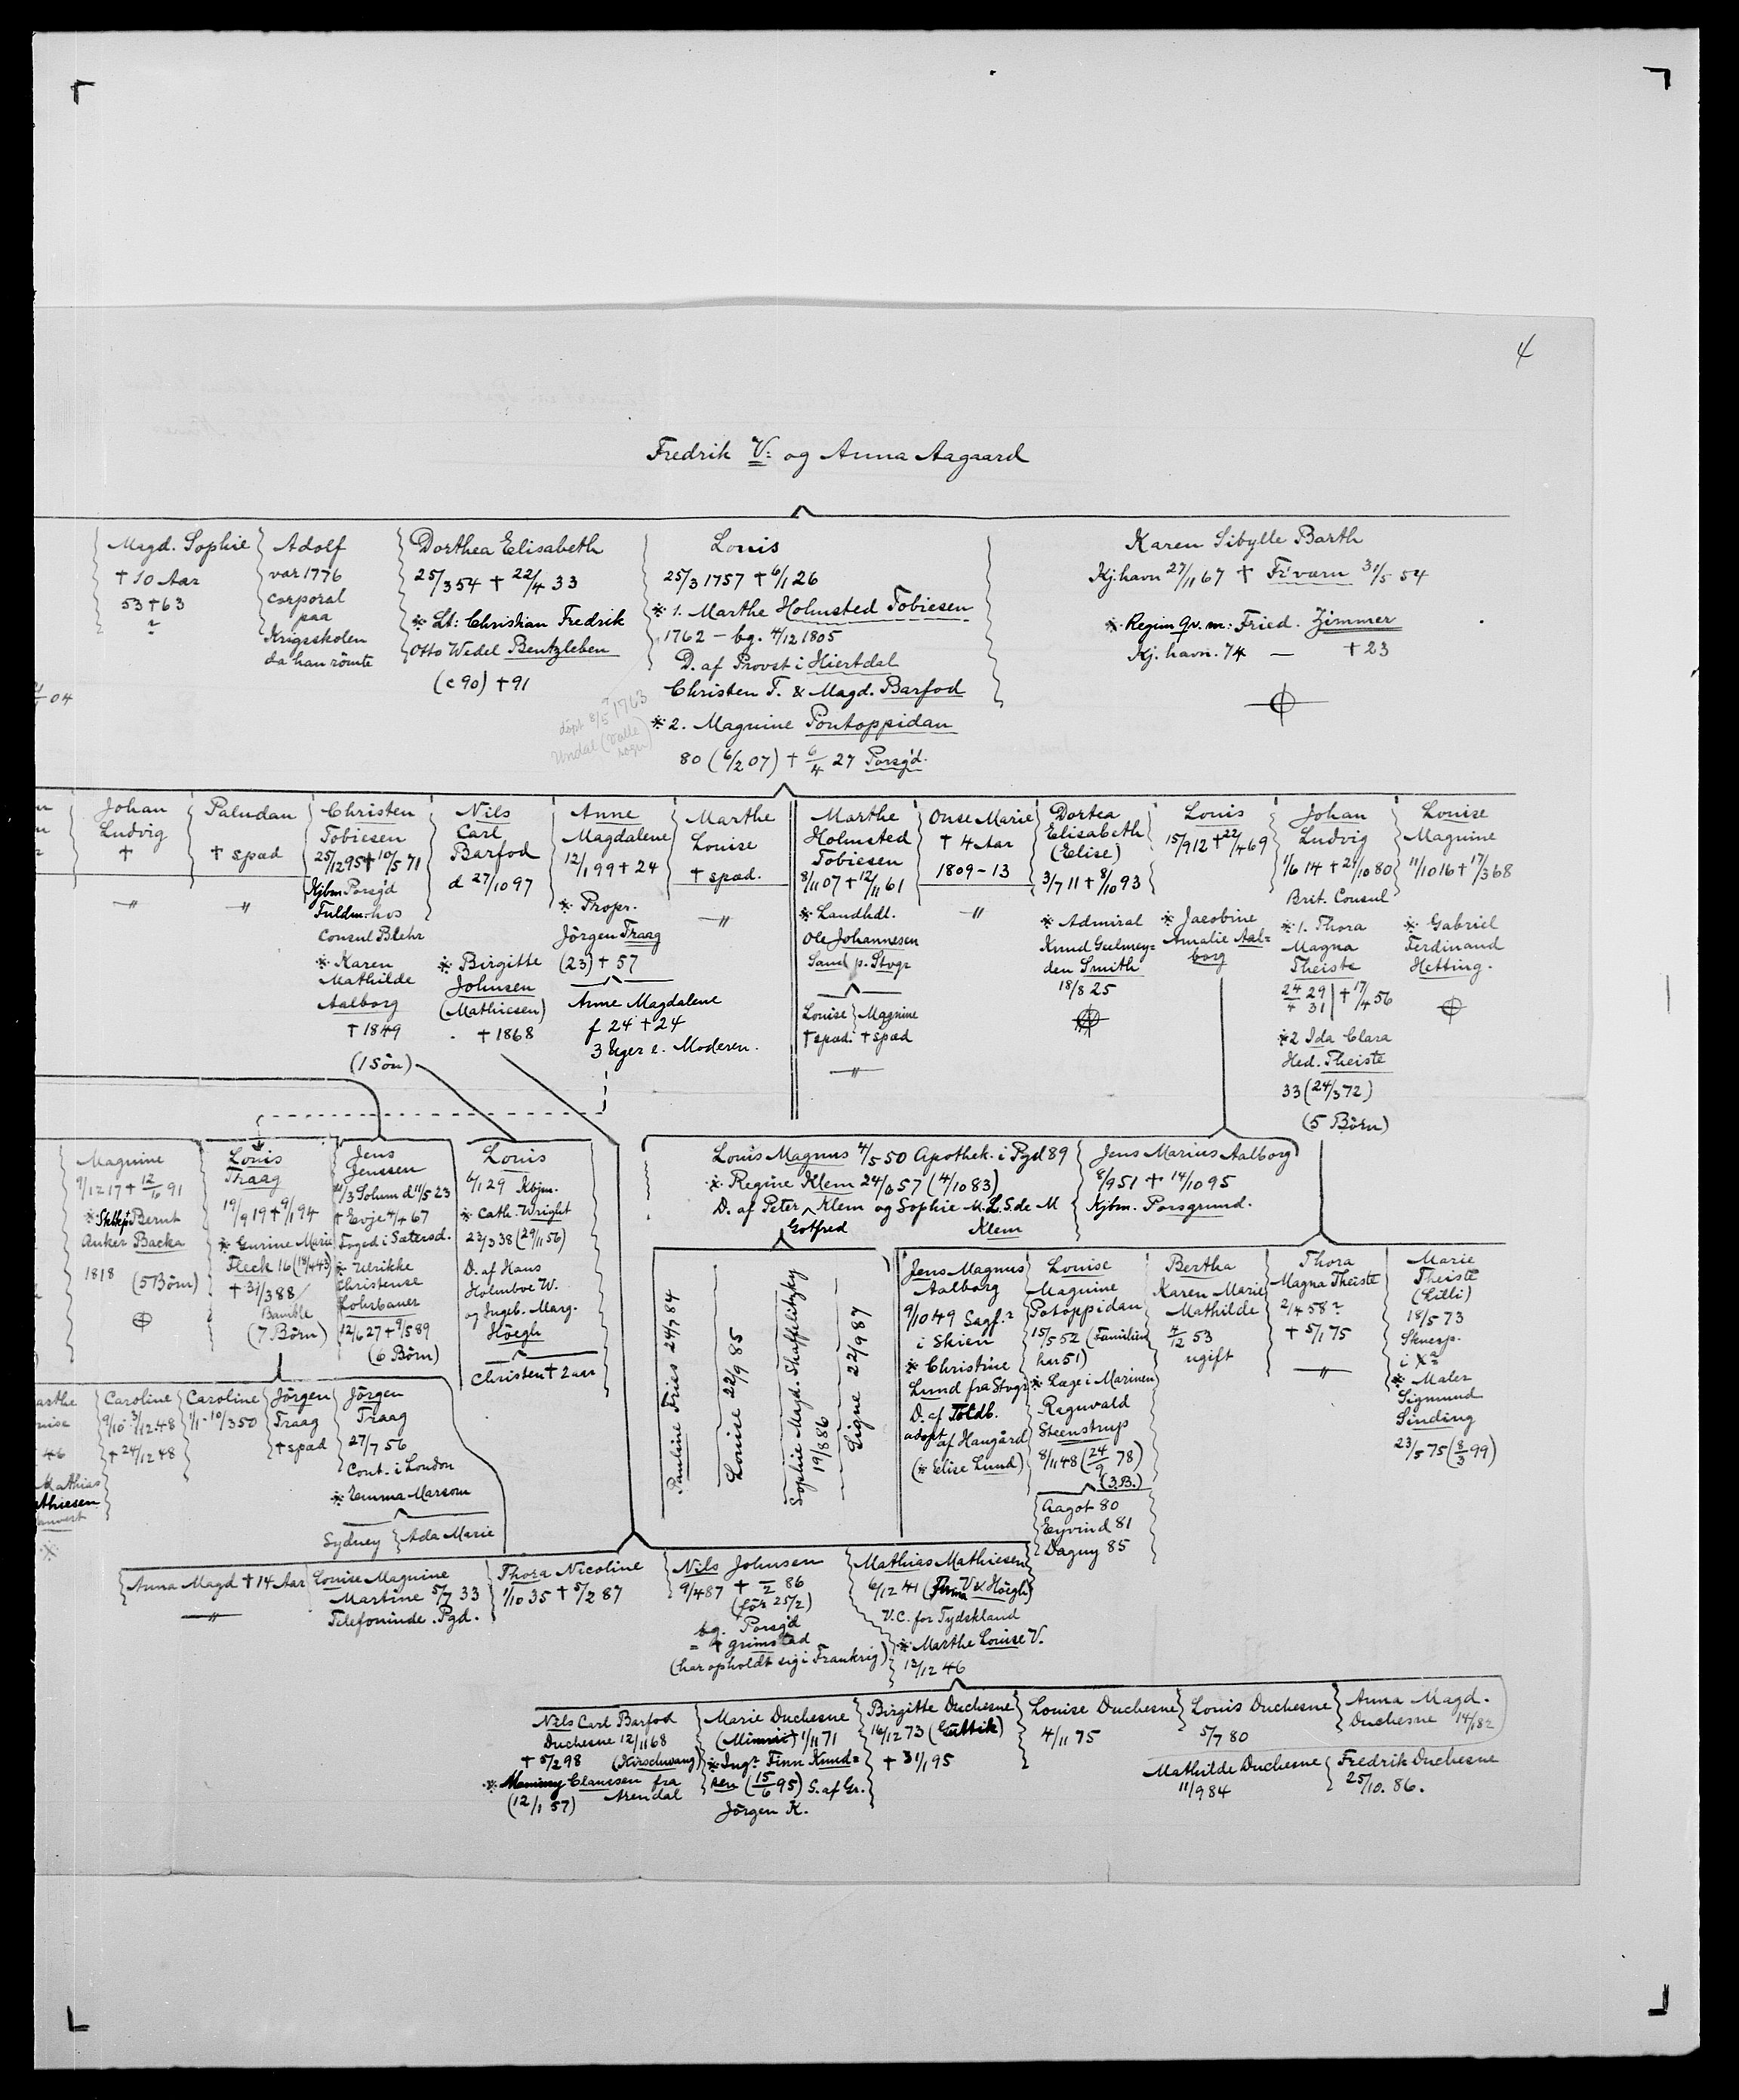 4
Fredrik V: og Anna Aagaard
Magd. Sophie
† 10 Aar
53 † 63
Adolf
var 1776
Corporal
paa
Krigsskolen
da han römte
Dorthea Elisabeth
25/3 54 † 22/4 33
* Lt: Christian Fredrik
Otto Wedel Bentzleben
(c 90) † 91
Louis
25/3 1757 † 6/1 26
* 1. Marthe Holmsted Tobiesen
1762 – bg. 4/12 1805
D. af Provst i Hiertdal
Christen T. & Magd. Barfod
* 2. Magnine Pontoppidan
80 (6/2 07) † 6/4 27 Porsg'd.
döpt 8/5 1763
Undal (Valle
sogn)
Karen Sibylle Barth
Kj:havn 27/11 67 † Fr'værn 31/5 54
* Regim Qv. m: Fried. Zimmer
Kj. havn. 74 — † 23
04
Johan
Ludvig
†
–〃–
Paludan
† spæd
–〃–
Christen
Tobiesen
25/12 95 † 10/5 71
Kjbm Porsg'd
Fuldm: hos
Consul Blehr
* Karen
Mathilde
Aalborg
† 1849
(1 Sön)
Nils
Carl
Barfod
d 27/10 97
* Birgitte
Johnsen
(Mathiesen)
† 1868
Anne
Magdalene
12/1 99 † 24
* Propr.
Jörgen Traag
(23) † 57
Anne Magdalene
f 24 † 24
3 Uger e. Moderen.
Marthe
Louise
† spæd.
–〃–
Marthe
Holmsted
Tobiesen
8/11 07 † 12/11 61
* Landhdl.
Ole Johannesen
Sand p. Stvgr
Louise } Magnine
† spæd. † spæd
–〃–
Onse Marie
† 4 Aar
1809–13
–〃–
Dortea
Elisabeth
(Elise)
3/7 11 † 8/10 93
* Admiral
Knud Gulmey=
den Smith
18/8 25
Louis
15/9 12 † 22/4 69
* Jacobine
Amalie Aal=
borg
Johan
Ludvig
1/6 14 † 21/10 80
Brit. Consul
* 1. Thora
Magna
Theiste
24/4 29 31 † 17/4 56
* 2 Ida Clara
Hed. Theiste
33 (24/3 72)
(5 Börn)
Louise
Magnine
11/10 16 † 17/3 68
* Gabriel
Ferdinand
Hetting.
Magnine
9/12 17 † 12/6 91
* Skbkpt. Bernt
Anker Backa
1818 (5 Börn)
Louis
Traag
19/9 19 † 9/1 94
* Gurine Marie
Fleck 16 (18/4 43)
† 31/3 88
Bamble
(7 Börn)
Jens
Jenssen
/3 Solum d 11/5 23
† Evje 4/4 67
Foged i Sætersd.
* Ulrikke
Christense
Lohrbauer
12/6 27 † 9/5 89
(6 Börn)
Louis
6/1 29 Kbjm.
* Cath. Wright
23/3 38 (29/11 56)
D. af Hans
Holmboe W.
og Ingeb. Marg.
Höegh
Christen † 2 aar
Louis Magnus 4/5 50 Apothek. i Pgd 89
* Regine Klem 24/6 57 (4/10 83)
D. af Peter Gotfred Klem og Sophie M. L. S. de M
Klem
Jens Marius Aalborg
8/9 51 † 14/10 95
Kjbm. Porsgrund.
Pauline Fries 24/7 84
Louise 22/9 85
Sophie Magd. Shaffelitzky
19/8 86
Signe 22/9 87
Jens Magnus
Aalborg
9/10 49 Sagf.r
i Skien
* Christine
Lund fra Stvgr
D. af Toldb.
adopt. af Haugård
(* Elise Lund)
Louise
Magnine
Potoppidan
15/5 52 (Familien
har 51)
* Læge i Marinen
Regnvald
Steenstrup
8/11 48 (24/9 78)
(3. B.)
Aagot 80
Eyvind 81
Dagny 85
Bertha
Karen Marie
Mathilde
4/12 53
ugift
Thora
Magna Theiste
2/4 58
† 5/1 75
–〃–
Marie
Theiste
(Lilli)
18/5 73
Skuesp.
i Xa
* Maler
Sigmund
Sinding
23/5 75 (8/3 99)
arthe
46
Mathias
athiesen
Caroline
9/10 - 3/12 48
† 24/12 48
Caroline
1/1 - 10/3 50
Jörgen
Traag
† spæd
Jörgen
Traag
27/7 56
Cont. i London
* Emma Marsom
Sydney } Ada Marie
Anna Magd † 14 Aar
–〃–
Louise Magnine
Martine 5/7 33
Telefoninde. Pgd.
Thora Nicoline
1/10 35 † 5/2 87
Nils Johnsen
9/4 87 † –/2 86
(för 25/2)
bg. Porsg'd
= † grimstad
(har opholdt sig i Frankrig)
Mathias Mathiesen
6/12 41 (Firma V & Höegh)
V.C. for Tydskland
* Marthe Louise V.
13/12 46
Nils Carl Barfod
Duchesne 12/11 68
† 5/2 98 (Kirschwang)
* Mammy Claussen fra
(12/1 57) Arendal
Marie Duchesne
(Mimmi) 1/11 71
* Ing.r Finn Knud=
sen (15/6 95) S. af Gr.
Jörgen K.
Birgitte Duchesne
16/12 73 (Gittik)
† 31/1 95
Louise Duchesne
4/11 75
Louis Duchesne
5/7 80
Anna Magd.
Duchesne 14/1 82
Mathilde Duchesne
11/9 84
Fredrik Duchesne
25/10. 86.